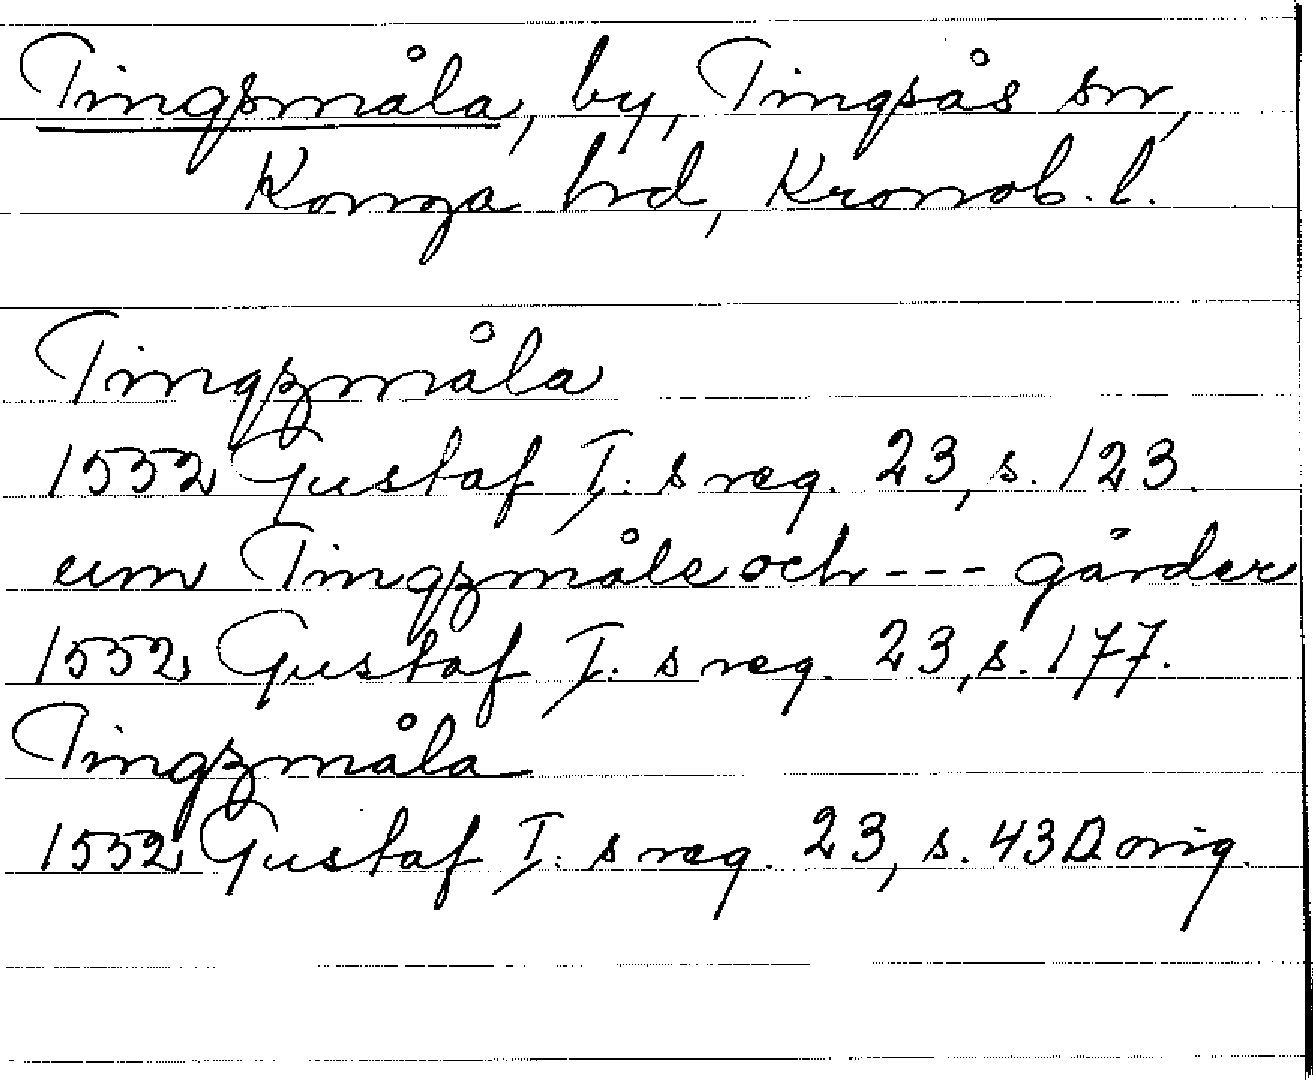 Tingsmåla, by, Tingsås sn,
Konga hd, Kronob. l.
Tingzmåla
1552 Gustaf I:s reg. 23, s. 123.
um Tingzmåle och --- gårder
1552 Gustaf I:s reg. 23, s. 177.
Tingzmåla
1552 Gustaf I:s reg. 23, s. 43 orig.